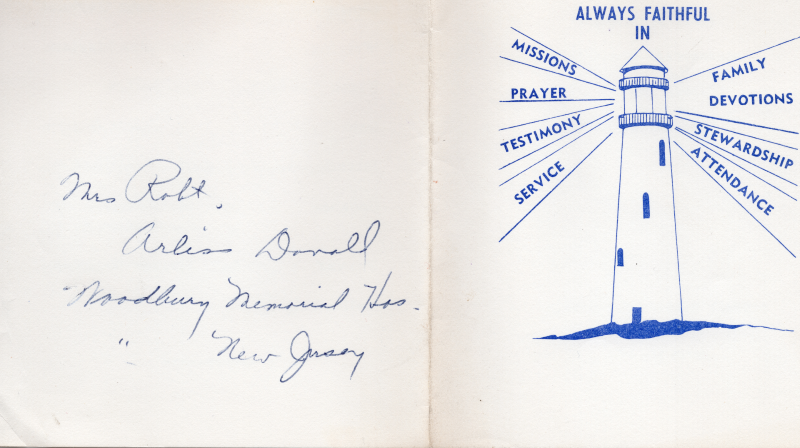 Mrs Robt.
Arliss Dovall
Woodbury Memorial Hos.
" New Jersey
ALWAYS FAITHFUL
IN
MISSIONS
PRAYER
TESTIMONY
SERVICE
FAMILY
DEVOTIONS
STEWARDSHIP
ATTENDANCE